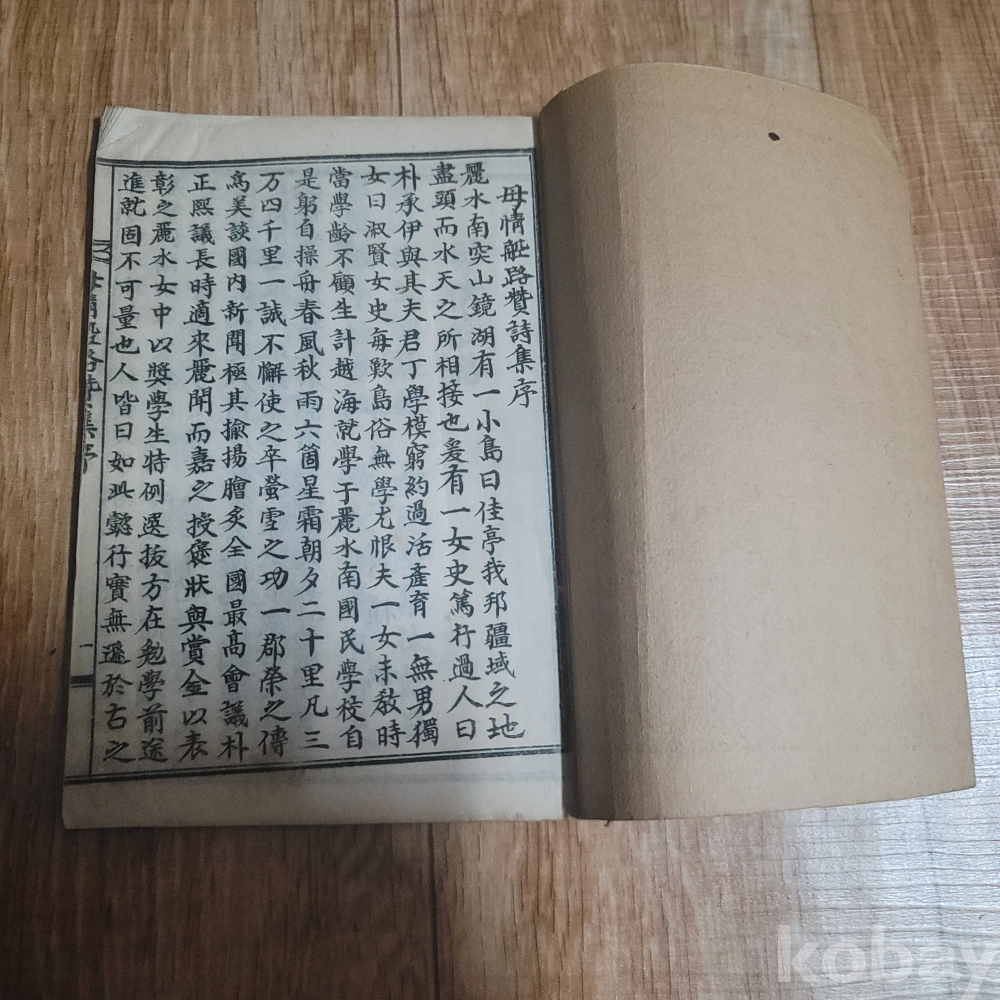 母情舩路贊詩集序
麗水南突山鏡湖有一小島曰佳亭我邦疆域之地
盡頭而水天之所相接也爰有一女史篤行過人曰
朴承伊與其夫君丁學模窮約過活產育一無男獨
女曰淑賢女史每歎島俗無學尤恨夫一女未敎時
當學齡不顧生計越海就學于麗水南國民學校自
是躬自操舟春風秋雨六箇星霜朝夕二十里凡三
万四千里一誠不懈使之卒螢雪之功一郡榮之傳
爲美談國內新聞極其揄揚膾炙全國最高會議朴
正熙議長時適來麗聞而嘉之授褒狀與賞金以表
彰之麗水女中以奬學生特例選拔方在勉學前途
進就固不可量也人皆曰如此懿行實無遜於古之
母情舩路詩集序
一
kobay